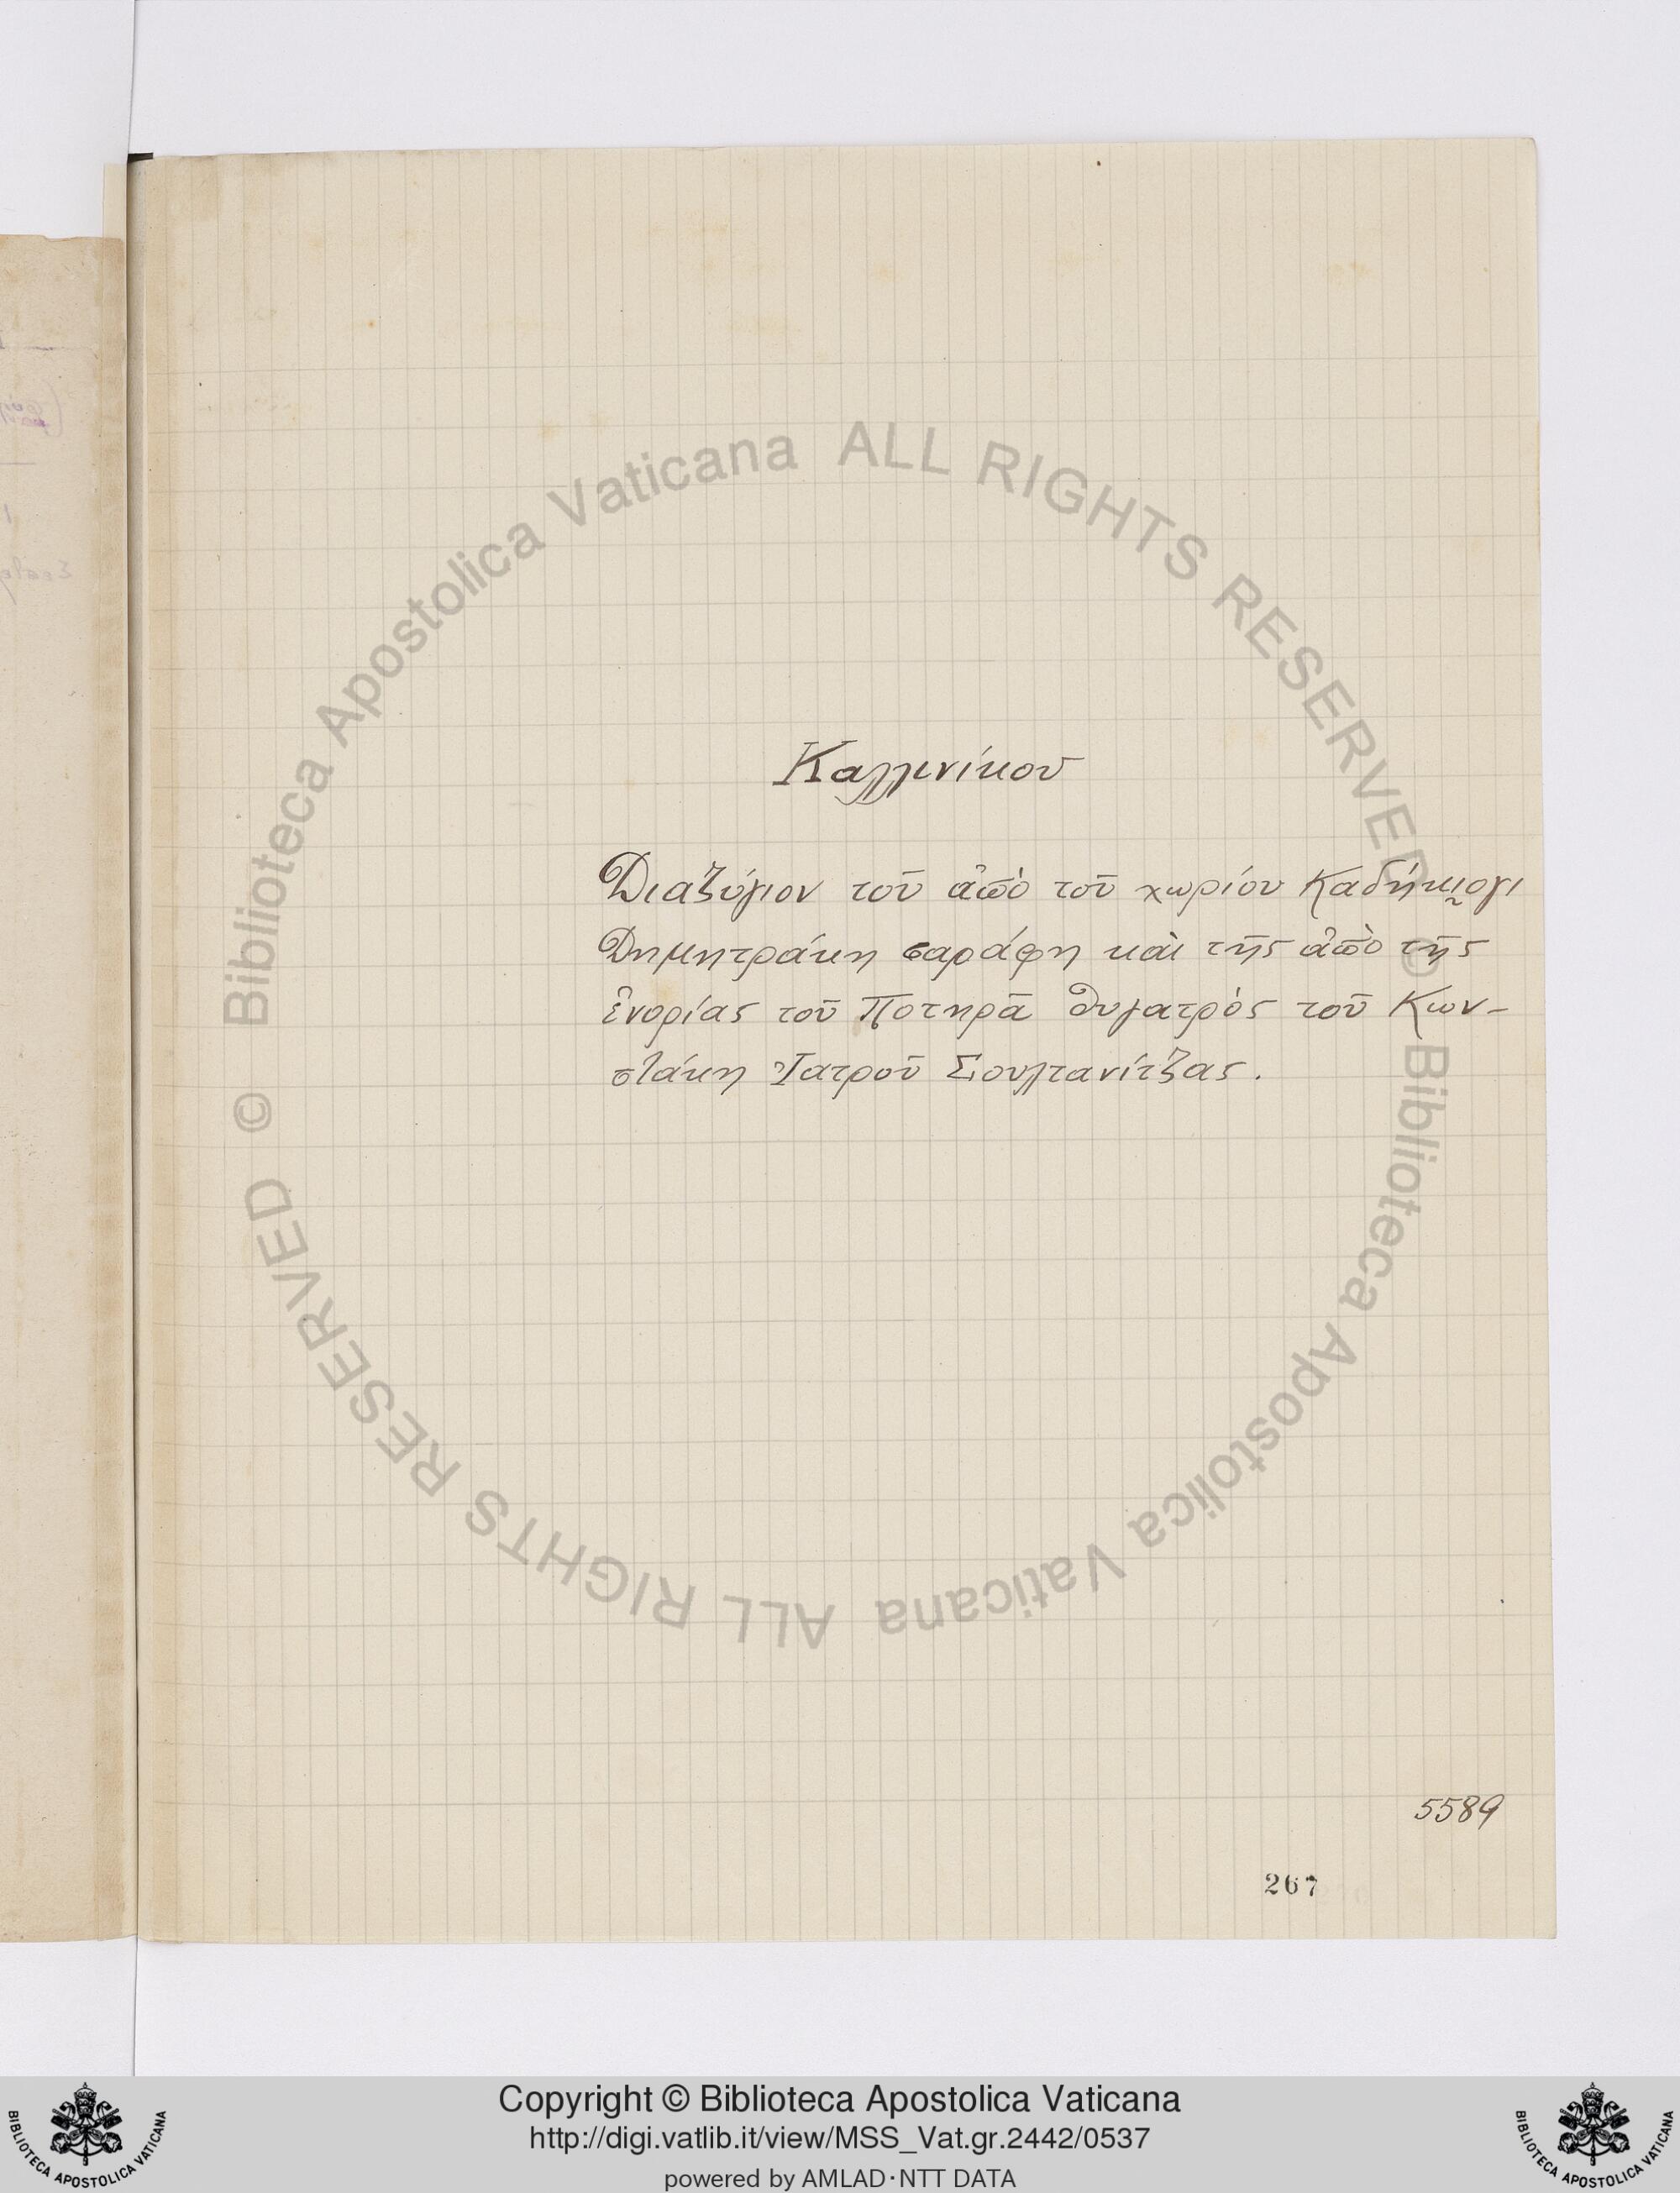 Καλλινίκου
Διαζύγιον τοῦ ἀπὸ τοῦ χωρίου Καδήκιογι
Δημητράκη σαράφη καὶ τῆς ἀπὸ τῆς
ἐνορίας τοῦ Ποτηρᾶ θυγατρὸς τοῦ Κων-
στάκη Ἰατροῦ Σουλτανίτζας.
5589
267
© Biblioteca Apostolica Vaticana ALL RIGHTS RESERVED
© Biblioteca Apostolica Vaticana ALL RIGHTS RESERVED
BIBLIOTECA APOSTOLICA VATICANA
Copyright © Biblioteca Apostolica Vaticana
http://digi.vatlib.it/view/MSS_Vat.gr.2442/0537
powered by AMLAD·NTT DATA
BIBLIOTECA APOSTOLICA VATICANA